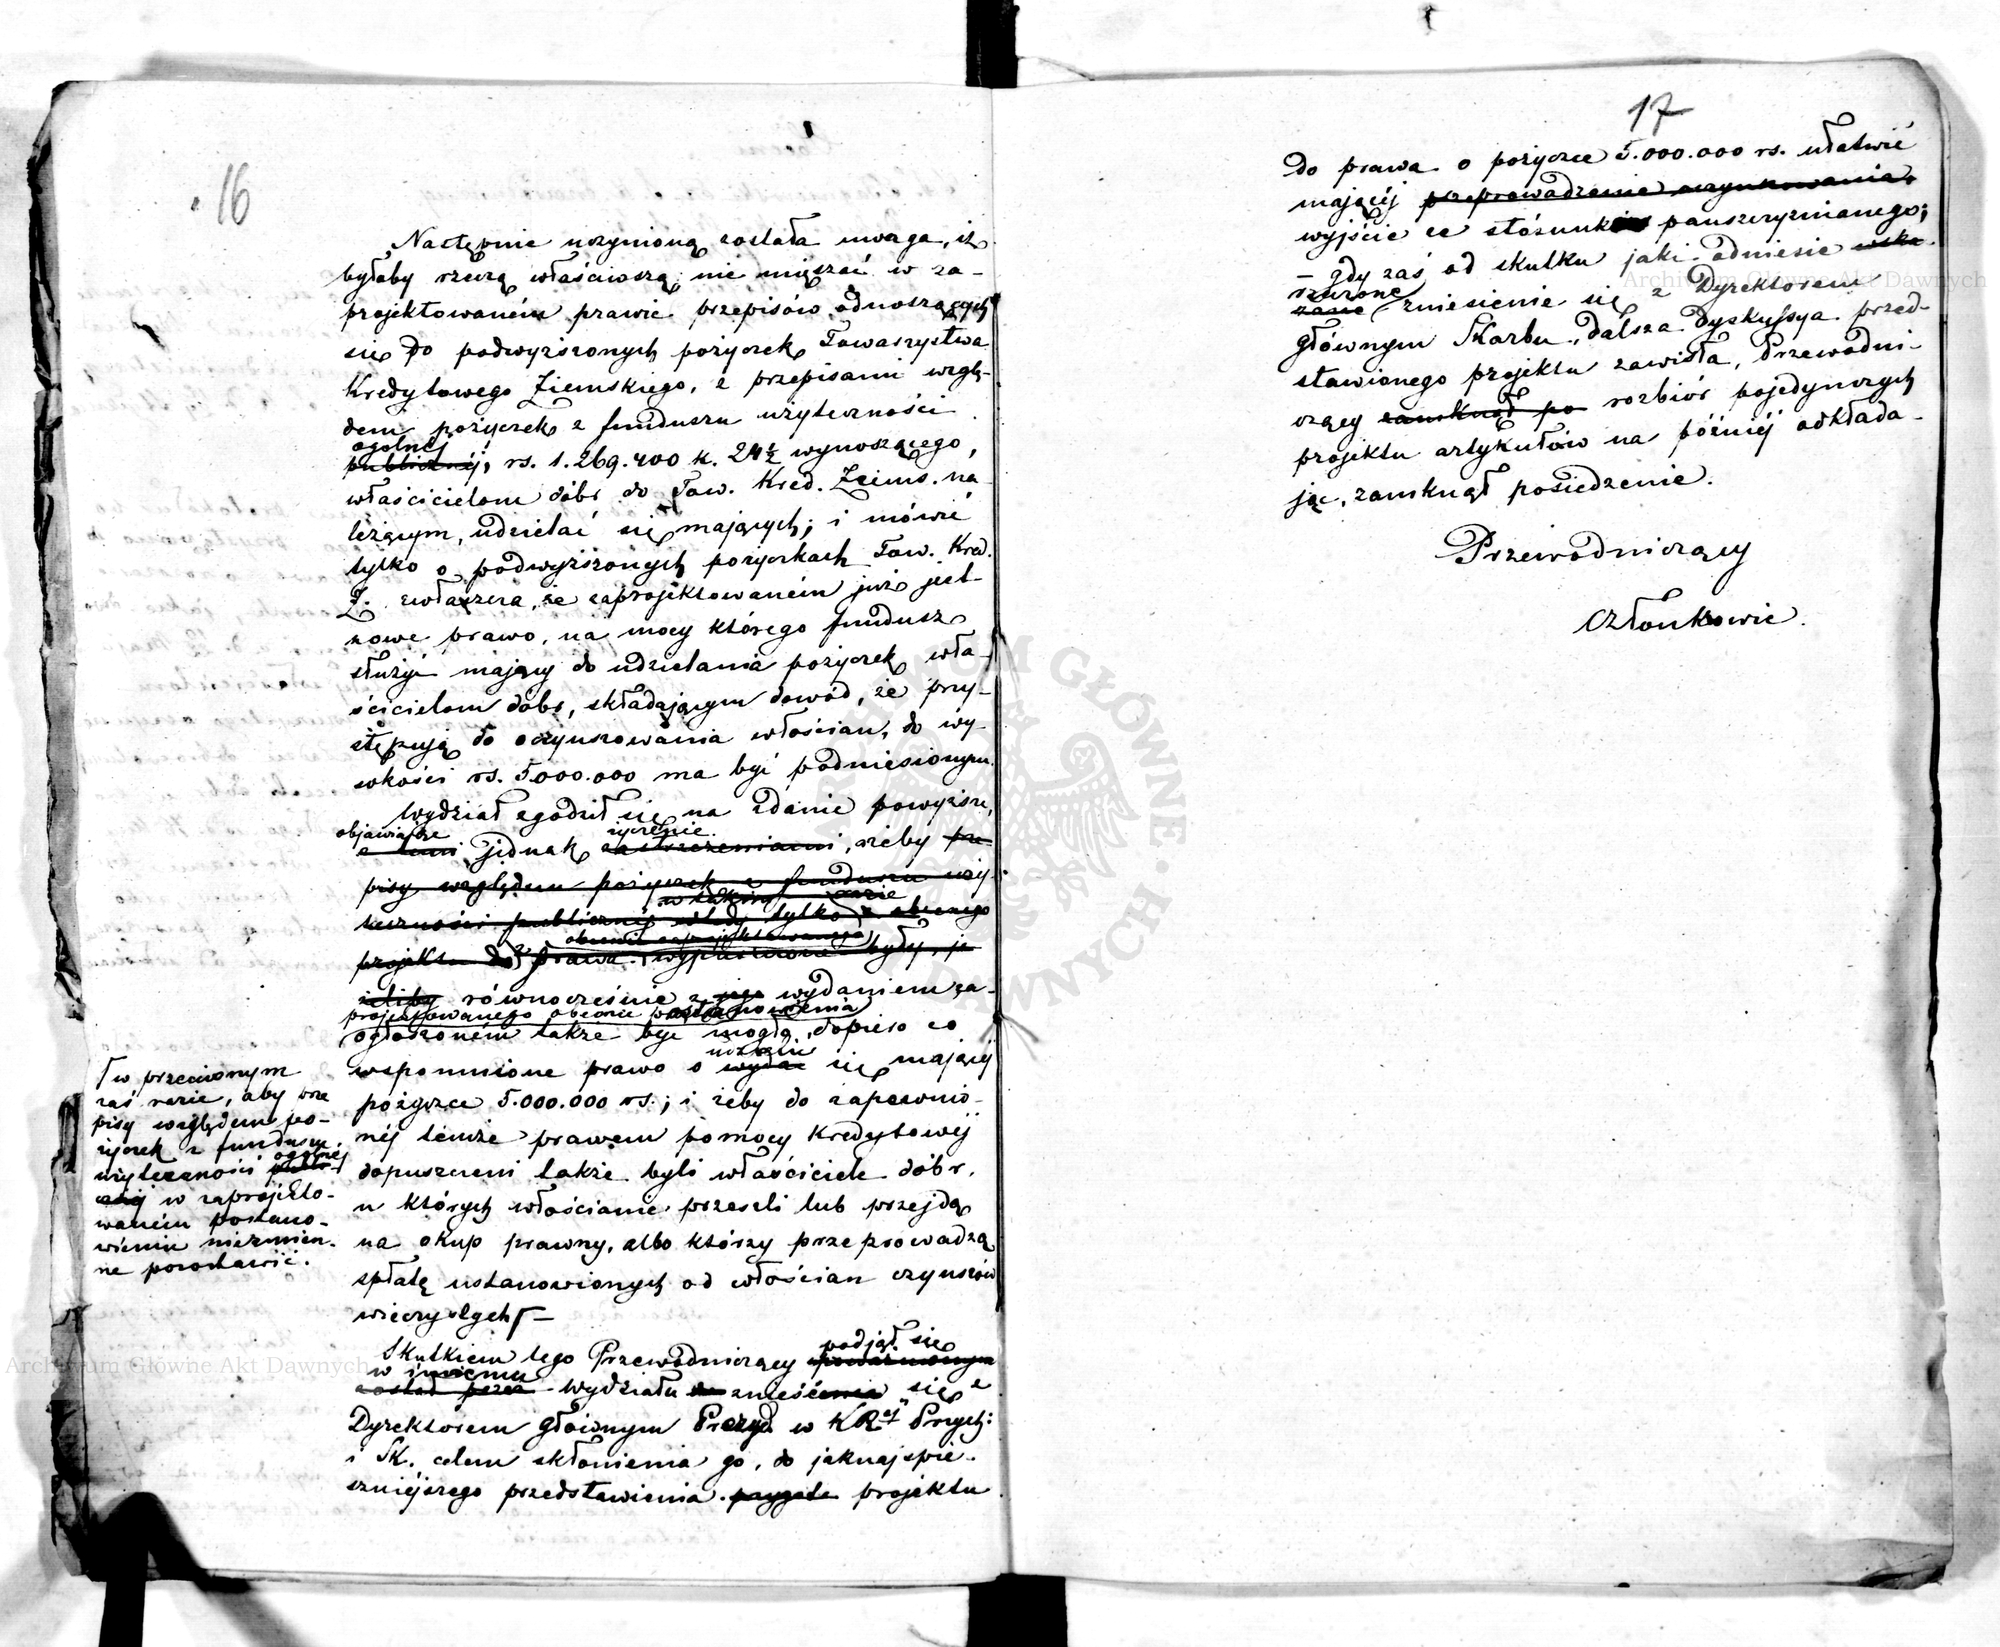 16
Następnie uczynioną została uwaga, iż
byłoby rzeczą właściwszą; nie mięszać w za-
projektowaném prawie przepisów odnoszących
się do podwyższonych pożyczek Towarzystwa
Kredytowego Ziemskiego, z przepisami wzglę-
dem pożyczek z funduszu użyteczności
ogólnej
publicznéj, rs. 1.269.400 k. 24½ wynoszącego,
właścicielom dóbr do Tow. Kred. Ziems. na
leżącym, udzielać się mających; i mówić
tylko o podwyższonych pożyczkach Tow. Kred.
Z. zwłaszcza, że zaprojektowaném już jest
nowe prawo, na mocy którego fundusz
służyć mający do udzielania pożyczek wła-
ścicielom dóbr, składającym dowód, że przy-
stępują do oczynszowania włościan, do wy-
sokości rs. 5.000.000 ma być podniesionym.
Wydział zgodził się na zdanie powyższe,
objawiając życzenie
z tém jednak zastrzeżeniami, ażeby prze
pisy względem pożyczek z funduszu uży-
w takim razie
teczności publicznéj wtedy tylko z obecnego
obecnie zaprojektowanego
projektu do prawa wypuszczone były, je
żeliby równocześnie z jego wydaniem za-
projektowanego obecnie postanowienia
ogłoszoném także być mogło, dopiero co
nastąpić
wspomnione prawo o wydać się mającéj
pożyczce 5.000.000 rs.; i żeby do zapewnio-
néj témże prawem pomocy kredytowéj
dopuszczeni także byli właściciele dóbr,
u których włościanie przeszli lub przejdą
na okup prawny, albo którzy przeprowadzą
spłatę ustanowionych od włościan czynszów
wieczystych –
w przeciwnym
zaś razie, aby prze
pisy względem po-
życzek z funduszu
ogólnej
użyteczności publi-
cznéj w zaprojekto-
waném postano-
wieniu niezmien-
ne pozostawić.
Skutkiem tego Przewodniczący podjął się
upoważnionym
w imieniu
został przez Wydziału do zniesienia się z
Dyrektorem Głównym Prezyd. w K Rej Przych:
i Sk. celem skłonienia go, do jaknajspie-
szniejszego przedstawienia projektu
17
do prawa o pożyczce 5.000.000 rs. ułatwić
mającéj przeprowadzenie oczynszowania,
wyjście ze stósunku pańszczyznianego;
– gdy zaś od skutku jaki odniesie wska-
rzeczone
zane zniesienie się z Dyrektorem
głównym Skarbu, dalsza dyskussya przed-
stawionego projektu zawisła, Przewodni-
czący zamknął po rozbiór pojedynczych
projektu artykułów na póżniéj odkłada-
jąc, zamknął posiedzenie.
Przewodniczący
Członkowie.
Archiwum Główne Akt Dawnych
Archiwum Główne Akt Dawnych